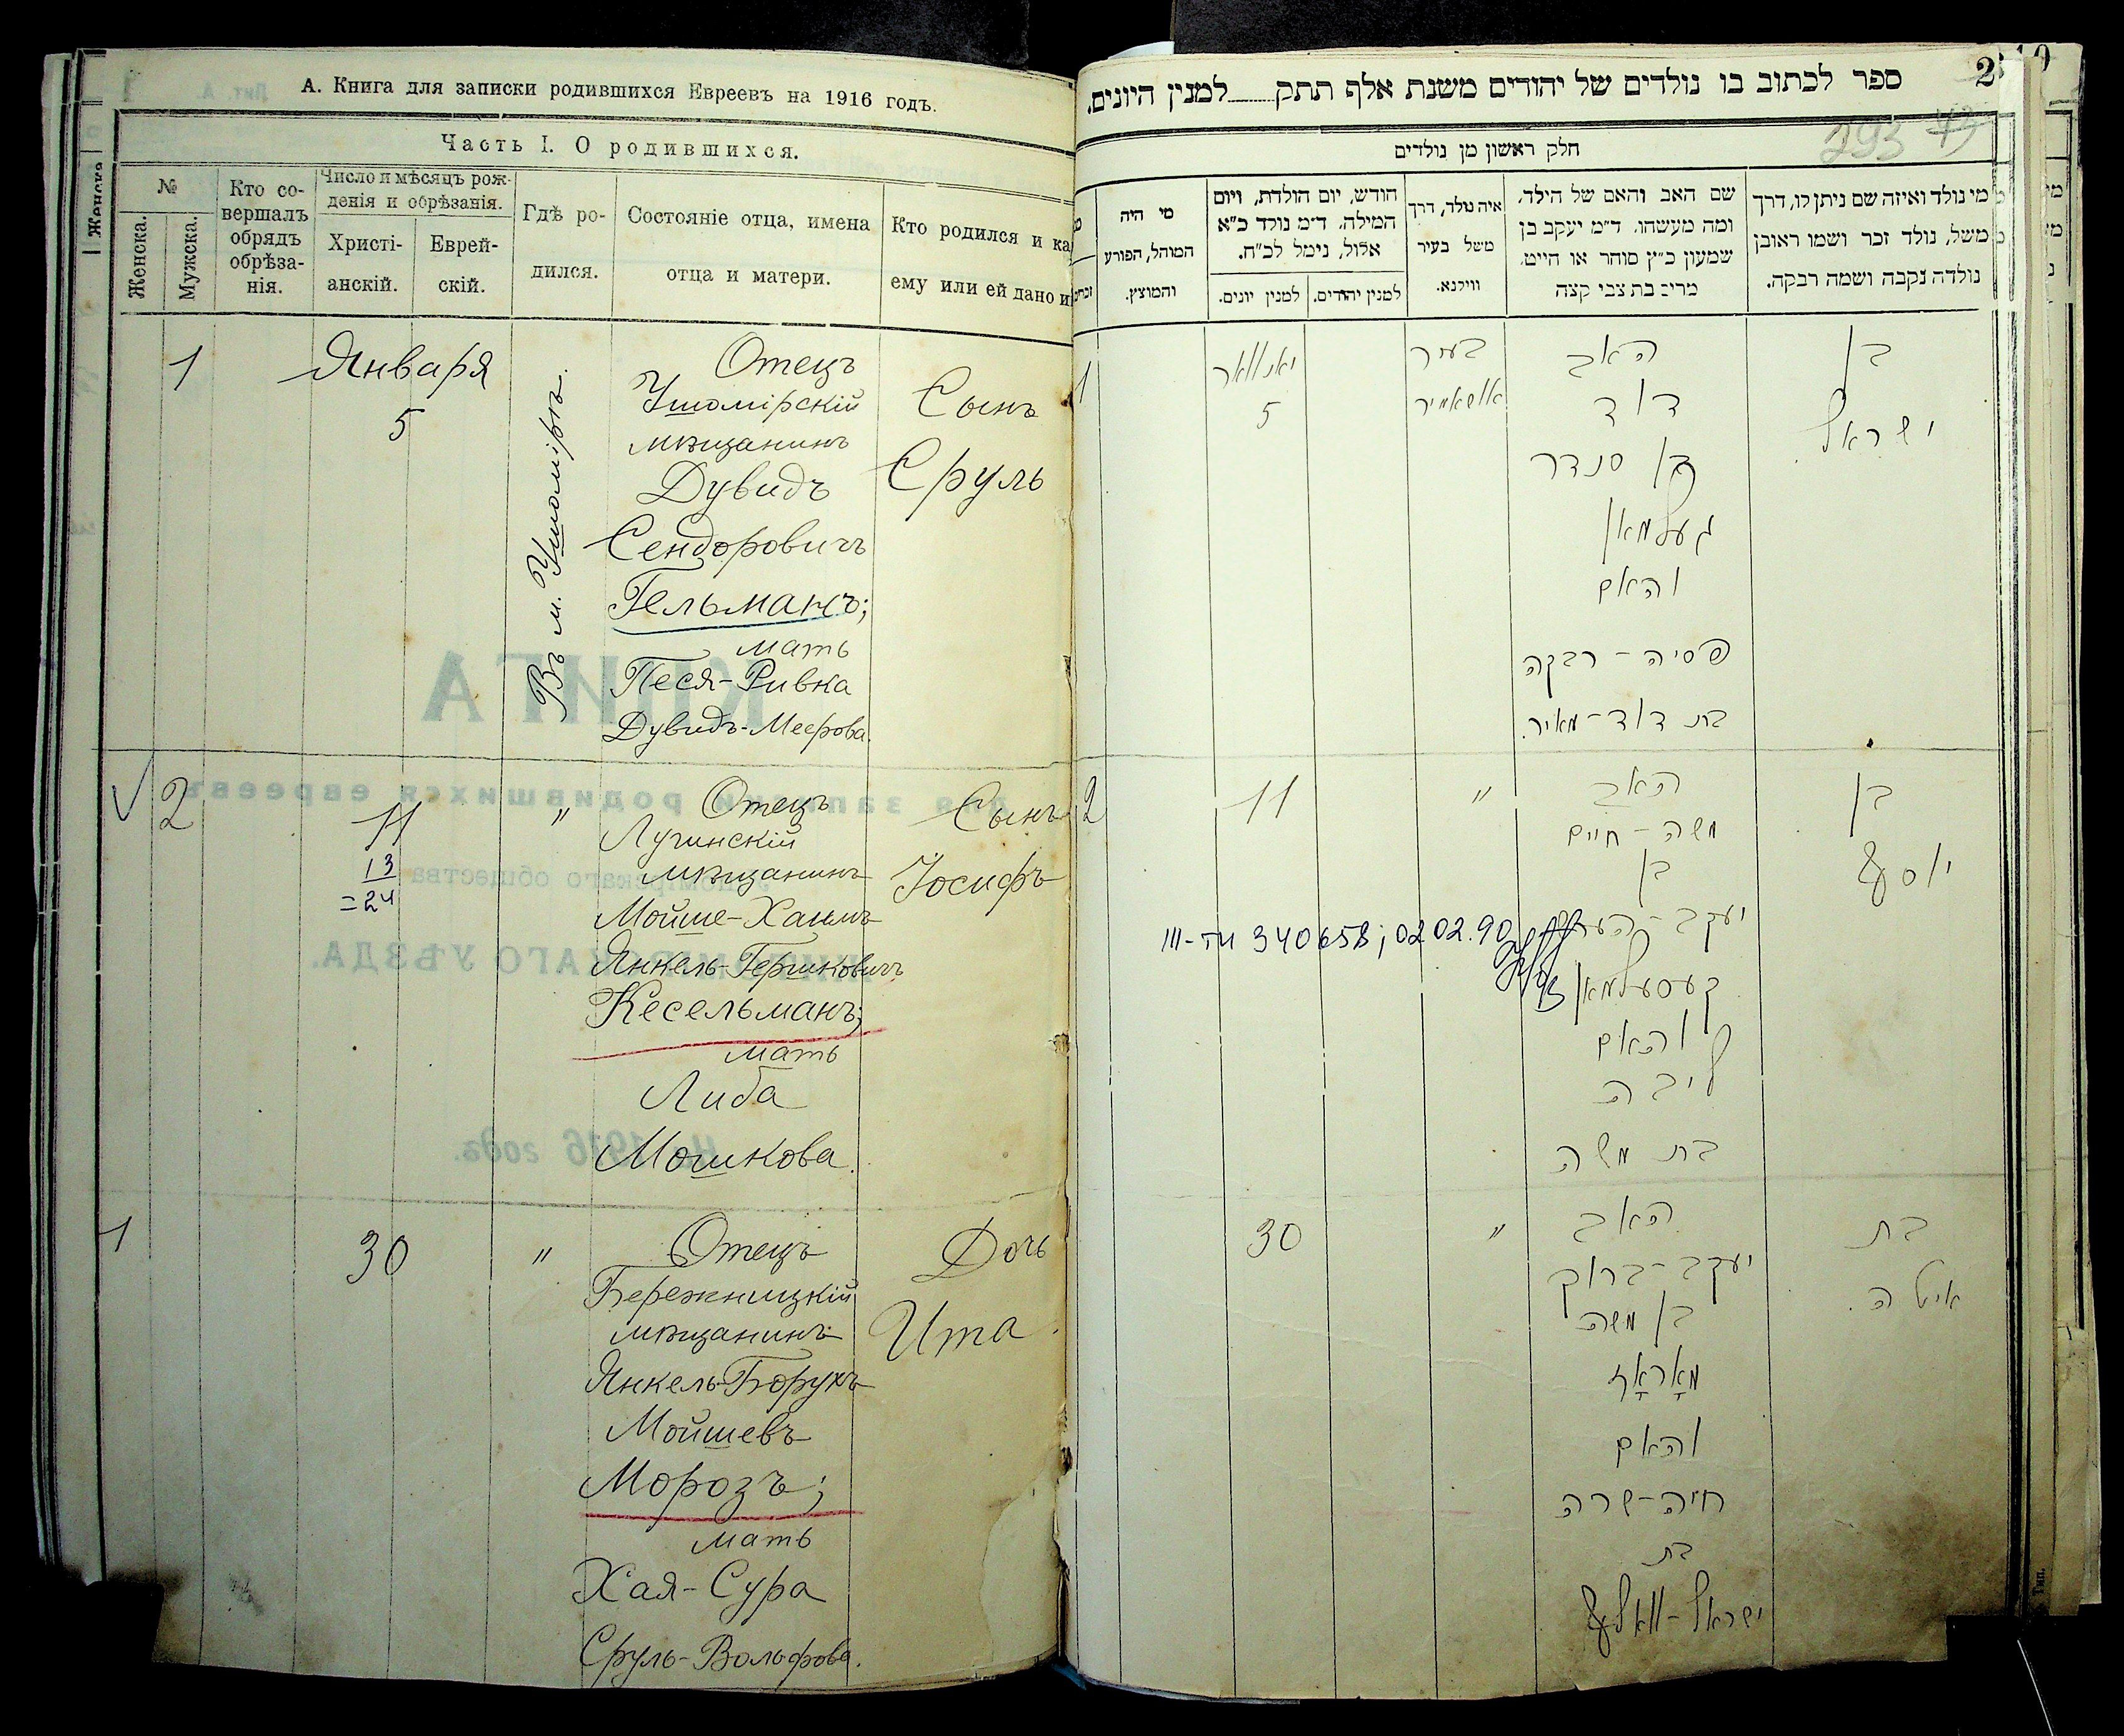 А. Книга для записки родившихся Евреевъ на 1916 годъ.
Часть I. О родившихся.
№
Женска.
Мужска.
Кто со-
вершалъ
обрядъ
обрѣза-
нія.
Число и мѣсяцъ рож-
денія и обрѣзанія.
Христі-
анскій.
Еврей-
скій.
Гдѣ ро-
дился.
Состояніе отца, имена
отца и матери.
Кто родился и ка
ему или ей дано и
1
Января
5
Въ м. Ушомірѣ.
Отецъ
Ушомірскій
мѣщанинъ
Дувидъ
Сендоровичъ
Гельманъ;
мать
Песя-Ривка
Дувидъ-Меерова.
Сынъ
Сруль
2
11
13
=24
"
Отецъ
Лугинскій
мѣщанинъ
Мойше-Хаимъ
Янкель-Гершковичъ
Кесельманъ;
мать
Либа
Мошкова.
Сынъ
Іосифъ
1
30
"
Отецъ
Бережницкій
мѣщанинъ
Янкель-Борухъ
Мойшевъ
Морозъ;
мать
Хая-Сура
Сруль-Вольфова.
Дочь
Ита.
ספר לכתוב בו נולדים של יהודים משנת אלף תתק למנין היונים.
2
293
חלק ראשון מן נולדים
מי נולד ואיזה שם ניתן לו, דרך
משל, נולד זכר ושמו ראובן
נולדה נקבה ושמה רבקה.
שם האב והאם של הילד,
ומה מעשהו. ד"מ יעקב בן
שמעון כ"ץ סוחר או חייט.
מרים בת צבי קצה
איה נולד, דרך
משל בעיר
ווילנא.
חודש, יום הולדת, ויום
המילה. ד"מ נולד כ"א
אלול, נימל לכ"ח.
למנין יהודים.
למנין יונים.
מי היה
המוהל, הפורע
והמוצץ.
בן
ישראל
האב
דוד
בן סנדר
געלמאן
והאם
פסיה-רבקה
בת דוד-מאיר.
בעיר
אושאמיר
יאנוואר
5
1
בן
יוסף
האב
משה-חיים
בן
קעסעלמאן
והאם
ליבה
בת משה
"
11
2
III-ТИ 340658; 02 02.90
בת
איטה.
האב
יעקב-ברוך
בן משה
מאָראָז
והאם
חיה-שרה
בת
ישראל-וואלף
"
30